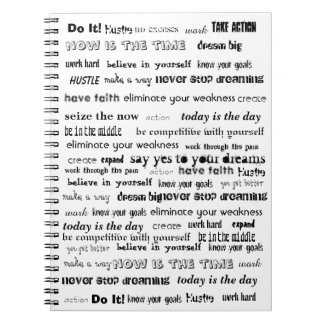 Do It! Hustle no excuses work TAKE ACTION
NOW IS THE TIME dream big
work hard believe in yourself know your goals
HUSTLE make a way never stop dreaming
have faith eliminate your weakness create
seize the now action today is the day
be in the middle be competitive with yourself
eliminate your weakness work through the pain
create expand say yes to your dreams
work through the pain have faith Hustle
believe in yourself know your goals you get better
make a way dream big never stop dreaming
work know your goals eliminate your weakness
today is the day create work hard expand
be competitive with yourself be in the middle
seize the now believe in yourself
make a way NOW IS THE TIME work
never stop dreaming today is the day
action Do It! know your goals Hustle work hard